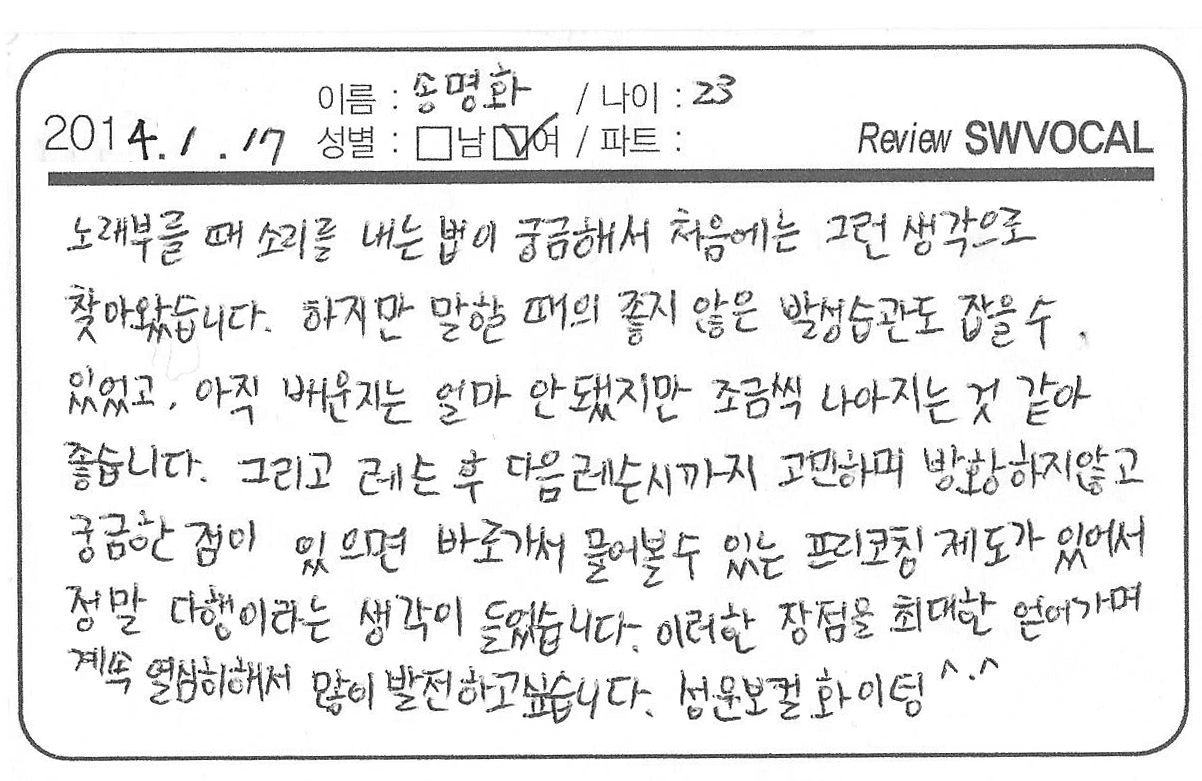 이름 : 송명화 / 나이 : 23
2014.1.17 성별 : □남 ☑여 / 파트 : Review SWVOCAL
노래부를 때 소리를 내는 법이 궁금해서 처음에는 그런 생각으로
찾아왔습니다. 하지만 말할 때의 좋지 않은 발성습관도 잡을 수
있었고, 아직 배운지는 얼마 안됐지만 조금씩 나아지는 것 같아
좋습니다. 그리고 레슨 후 다음레슨시까지 고민하며 방황하지않고
궁금한 점이 있으면 바로가서 물어볼 수 있는 프리코칭 제도가 있어서
정말 다행이라는 생각이 들었습니다. 이러한 장점을 최대한 얻어가며
계속 열심히해서 많이 발전하고싶습니다. 성운보컬 화이팅 ^.^